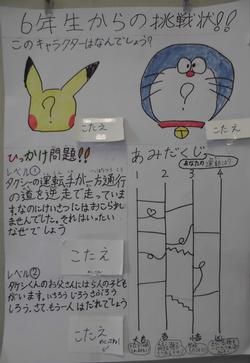 6年生からの挑戦状!!
このキャラクターはなんでしょう?
?
こたえ
?
こたえ
ひっかけ問題!!
レベル①
タクシーの運転手が一方通行
の道を逆走で走っていま
す。なのにけいさつにはおこられ
ませんでした。それはいったい
なぜでしょう
こたえ
レベル②
タケシくんのお父さんには5人の子ども
がいます。いちろう じろう さぶろう
しろう。さて、もう一人はだれでしょう
こたえ
あみだくじ
あなたの運勢は?
1 2 3 4
大吉
吉